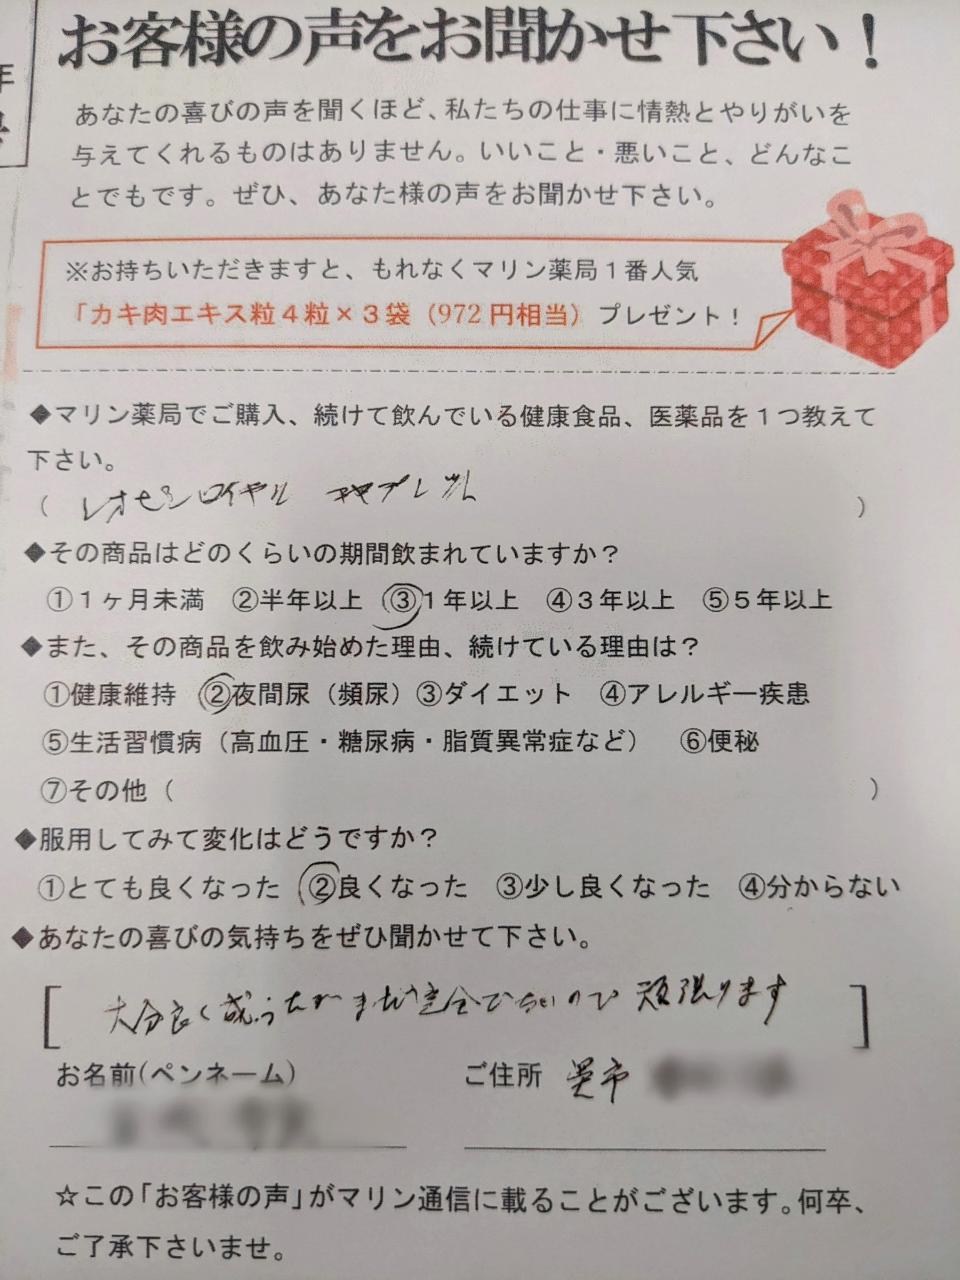 お客様の声をお聞かせ下さい！
あなたの喜びの声を聞くほど、私たちの仕事に情熱とやりがいを
与えてくれるものはありません。いいこと・悪いこと、どんなこ
とでもです。ぜひ、あなた様の声をお聞かせ下さい。
※お持ちいただきますと、もれなくマリン薬局１番人気
「カキ肉エキス粒４粒×３袋（972円相当）プレゼント！
◆マリン薬局でご購入、続けて飲んでいる健康食品、医薬品を１つ教えて
下さい。
（ レオピンロイヤル ）
◆その商品はどのくらいの期間飲まれていますか？
①１ヶ月未満 ②半年以上 ③１年以上 ④３年以上 ⑤５年以上
◆また、その商品を飲み始めた理由、続けている理由は？
①健康維持 ②夜間尿（頻尿）③ダイエット ④アレルギー疾患
⑤生活習慣病（高血圧・糖尿病・脂質異常症など） ⑥便秘
⑦その他（ ）
◆服用してみて変化はどうですか？
①とても良くなった ②良くなった ③少し良くなった ④分からない
◆あなたの喜びの気持ちをぜひ聞かせて下さい。
[ 大分良く成ったがまだ完全でないので 頑張ります ]
お名前(ペンネーム)
ご住所 呉市
☆この「お客様の声」がマリン通信に載ることがございます。何卒、
ご了承下さいませ。